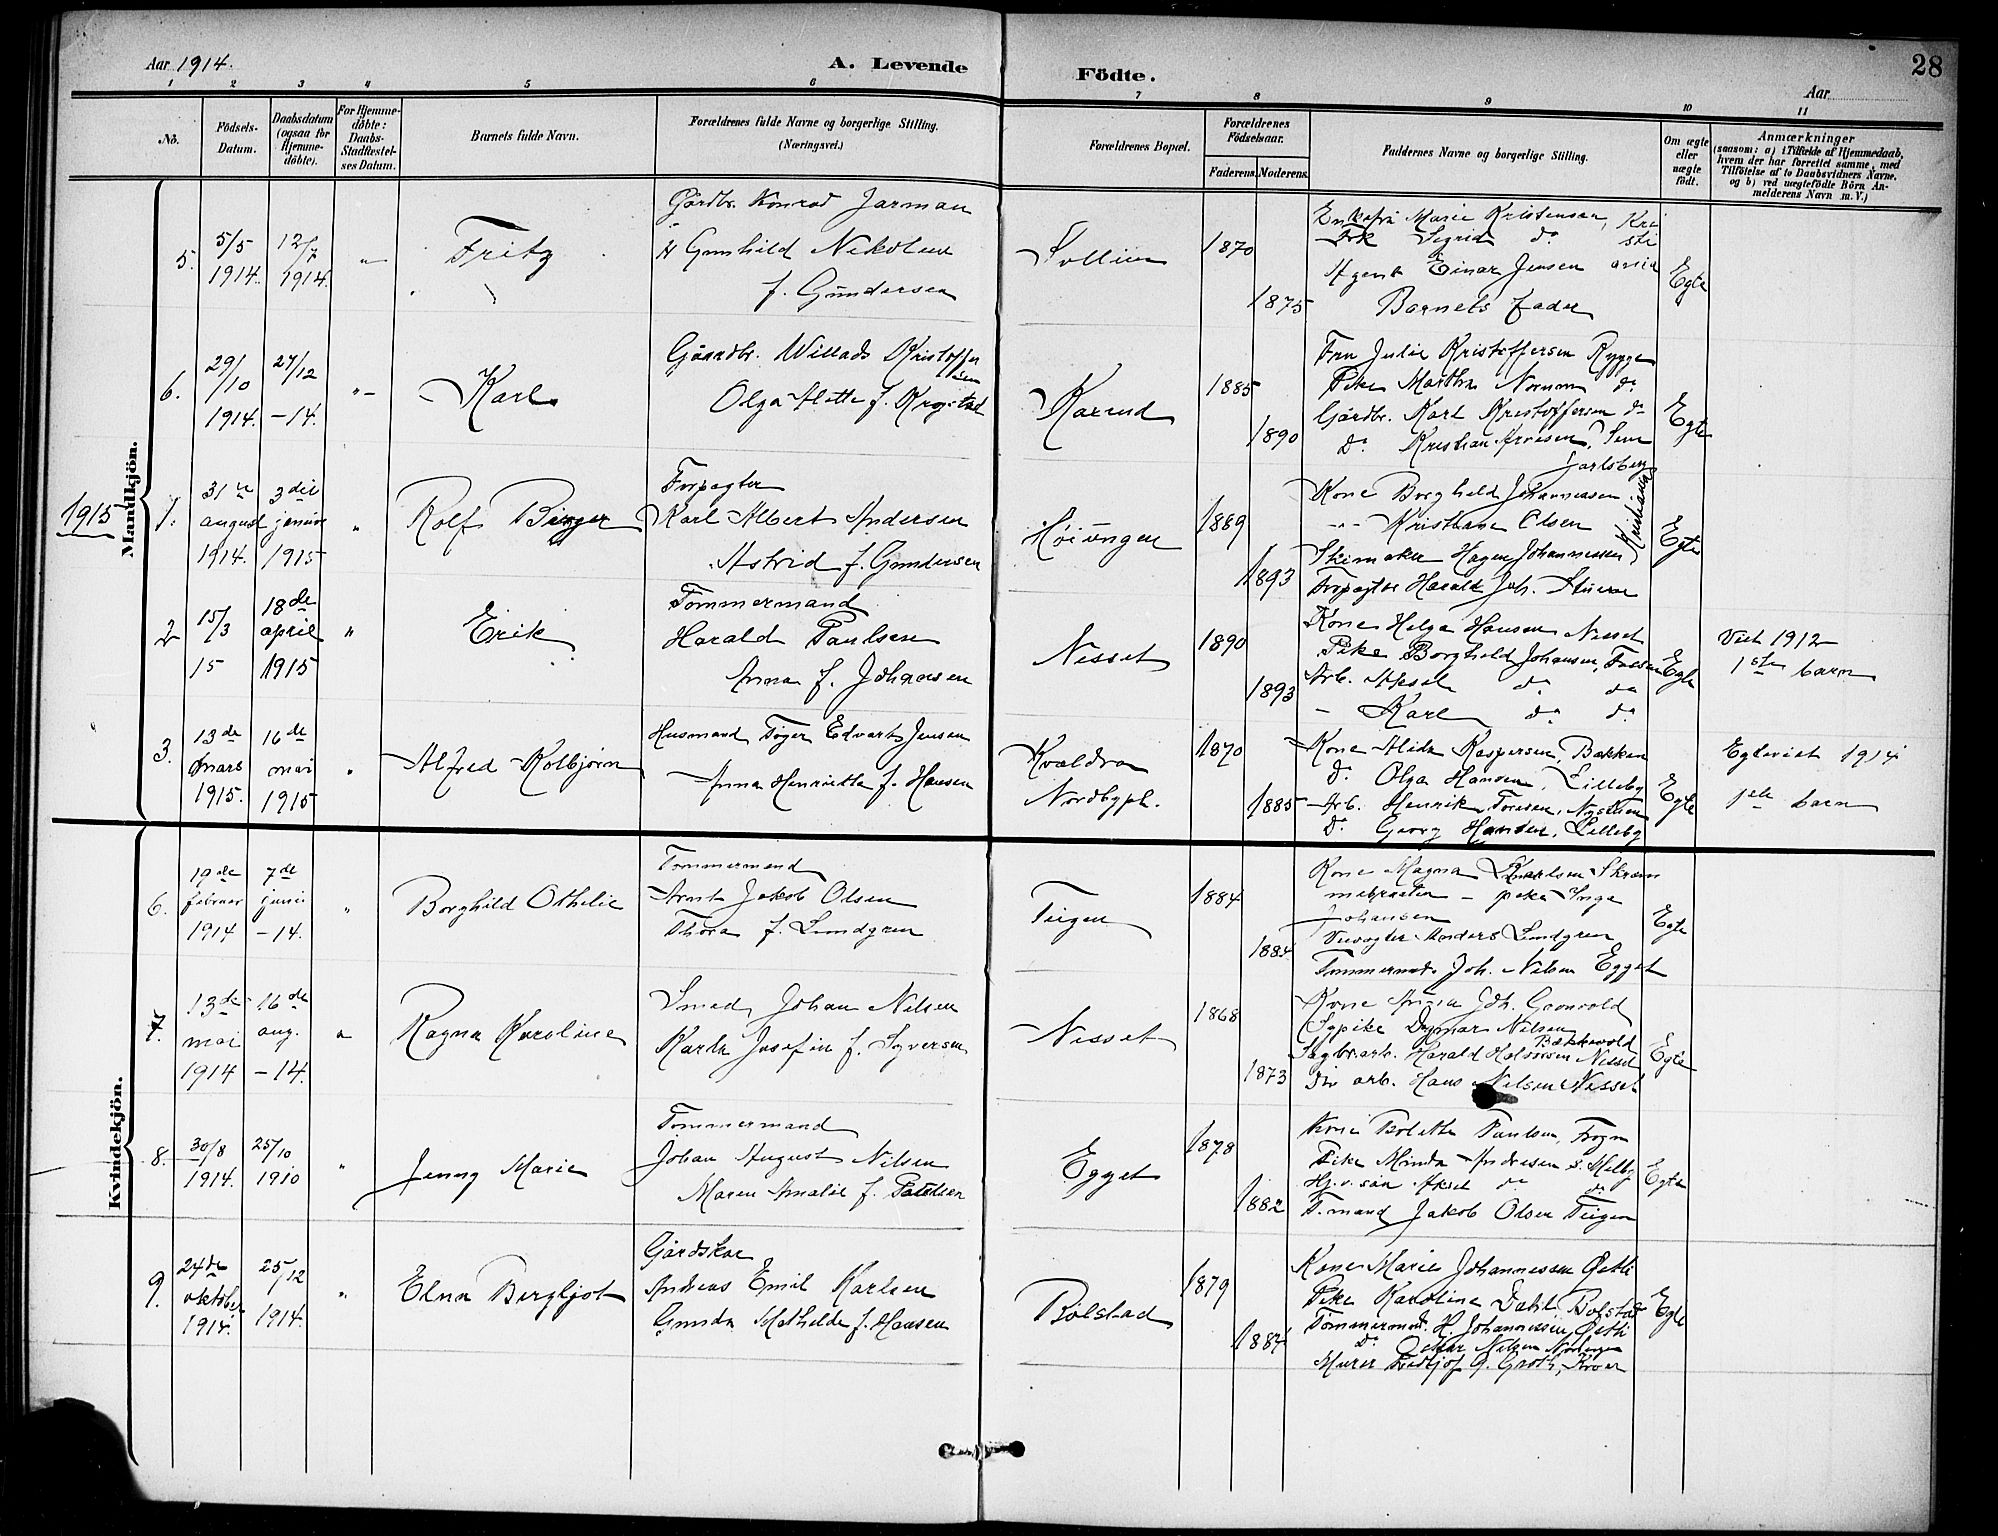 Aar 1914.
A. Levende
Födte.
28
Aar
1 2 3 4 5 6 7 8 9 10 11
No.
Födsels-
Datum.
Daabsdatum
(ogsaa for
Hjemme-
döbte).
For Hjemme-
döbte:
Daabs-
Stadfæstel-
ses Datum.
Barnets fulde Navn.
Forældrenes fulde Navne og borgerlige Stilling.
(Næringsvei.)
Forældrenes Bopæl.
Forældrenes
Födselsaar.
Faderens. Moderens.
Faddernes Navne og borgerlige Stilling.
Om ægte
eller
uægte
født.
Anmærkninger
(saasom: a) i Tilfælde af Hjemmedaab,
hvem der har forrettet samme, med
Tilföielse af to Daabsvidners Navne,
og b) ved uægtefödte Börn An-
melderens Navn m. V.)
Mandkjön.
5.
5/5
1914.
12/7
1914.
"
Fritz
Gårdbr. Konrad Jarman
Gunhild Nikoline
f. Gundersen
Sollien
1870
1875
Enkefru Marie Kristensen, Kri
Frk Sigrid do sti
Agent Einar Jensen ania
Barnets fader
Egte
6.
29/10
1914.
27/12
-14.
"
Karl
Gåardbr. Willads Kristoffer
sen
Olga Alette f. Krogstad
Kaxrud
1885
1890
Fru Julie Kristoffersen Rygge
Pike Martha Norum do
Gårdbr. Karl Kristoffersen do
do Kristian Arnesen, Sem
Jarlsberg
Egte
1915
1.
31te
august
1914.
3die
januar
1915
"
Rolf Birger
Forpagter
Karl Albert Andersen
Astrid f. Gundersen
Høiungen
1889
1893
Kone Borghild Johannessen
" Kristiane Olsen
Kristiania
Skomaker Hagen Johannessen
Forpagter Harald Joh.
Egte
2
15/3
15
18de
april
1915
"
Erik
Tømmermand
Harald Paulsen
Anna f. Johansen
Nesset
1890
1893
Kone Helga Hansen Nesset
Pike Borghild Johansen,
Arb. Aksel do do
- Karl do do
Egte
Viet 1912
1ste barn
3.
13de
mars
1915.
16de
mai
1915
"
Alfred Kolbjørn
Husmand Tøger Edvart Jensen
Anna Henriette f. Hansen
Kvaldran
Nordbypl.
1870
1885
Kone Alida Kaspersen, Bakken
do Olga Hansen, Lilleby
Arb. Henrik Toresen,
do Georg Hansen, Lilleby
Egte
Egteviet 1914
1ste barn
Kvindekjön.
6.
19de
februar
1914
7de
juni
-14.
"
Borghild Othelie
Tømmermand
Arnt Jakob Olsen
Thora f. Lundgren
Teigen
1884
1884
Kone Magna Karlsen Skram
mebraaten - pike Inga
Johansen
Veivogter Anders Lundgren
Tømmermd. Joh. Nilsen Egget
Egte
7.
13de
mai
1914
16de
aug.
-14.
"
Ragna Karoline
Smed Johan Nilsen
Karen Josefin f. Syversen
Nesset
1868
1873
Kone Anna Joh. Grønvold
Sypike Dagmar Nilsen
Bækkevold
Sagbr.arb. Harald Halvorsen Nesset
Div arb. Hans Nilsen Nesset
Egte
8.
30/8
1914.
25/10
1910
"
Jenny Marie
Tømmermand
Johan August Nilsen
Maren Amalie f. Paulsen
Egget
1878
1882
Kone Bolette Paulsen, Frogn
Pike Minda Andresen s. Melby
Hj.v. søn Aksel do do
T.mand Jakob Olsen Teigen
Egte
9.
24de
oktober
1914.
25/12
1914.
"
Elna Bergljot
Gårdskar
Andreas Emil Karlsen
Gunda Mathilde f. Hansen
Bølstad
1879
1884
Kone Marie Johannessen Østli
Pike Karoline Dahl, Bølstad
Tømmermd. H. Johannessen, Østli
do Oskar Nilsen
Murer Fredtjof G. Groth, Kroer
Egte